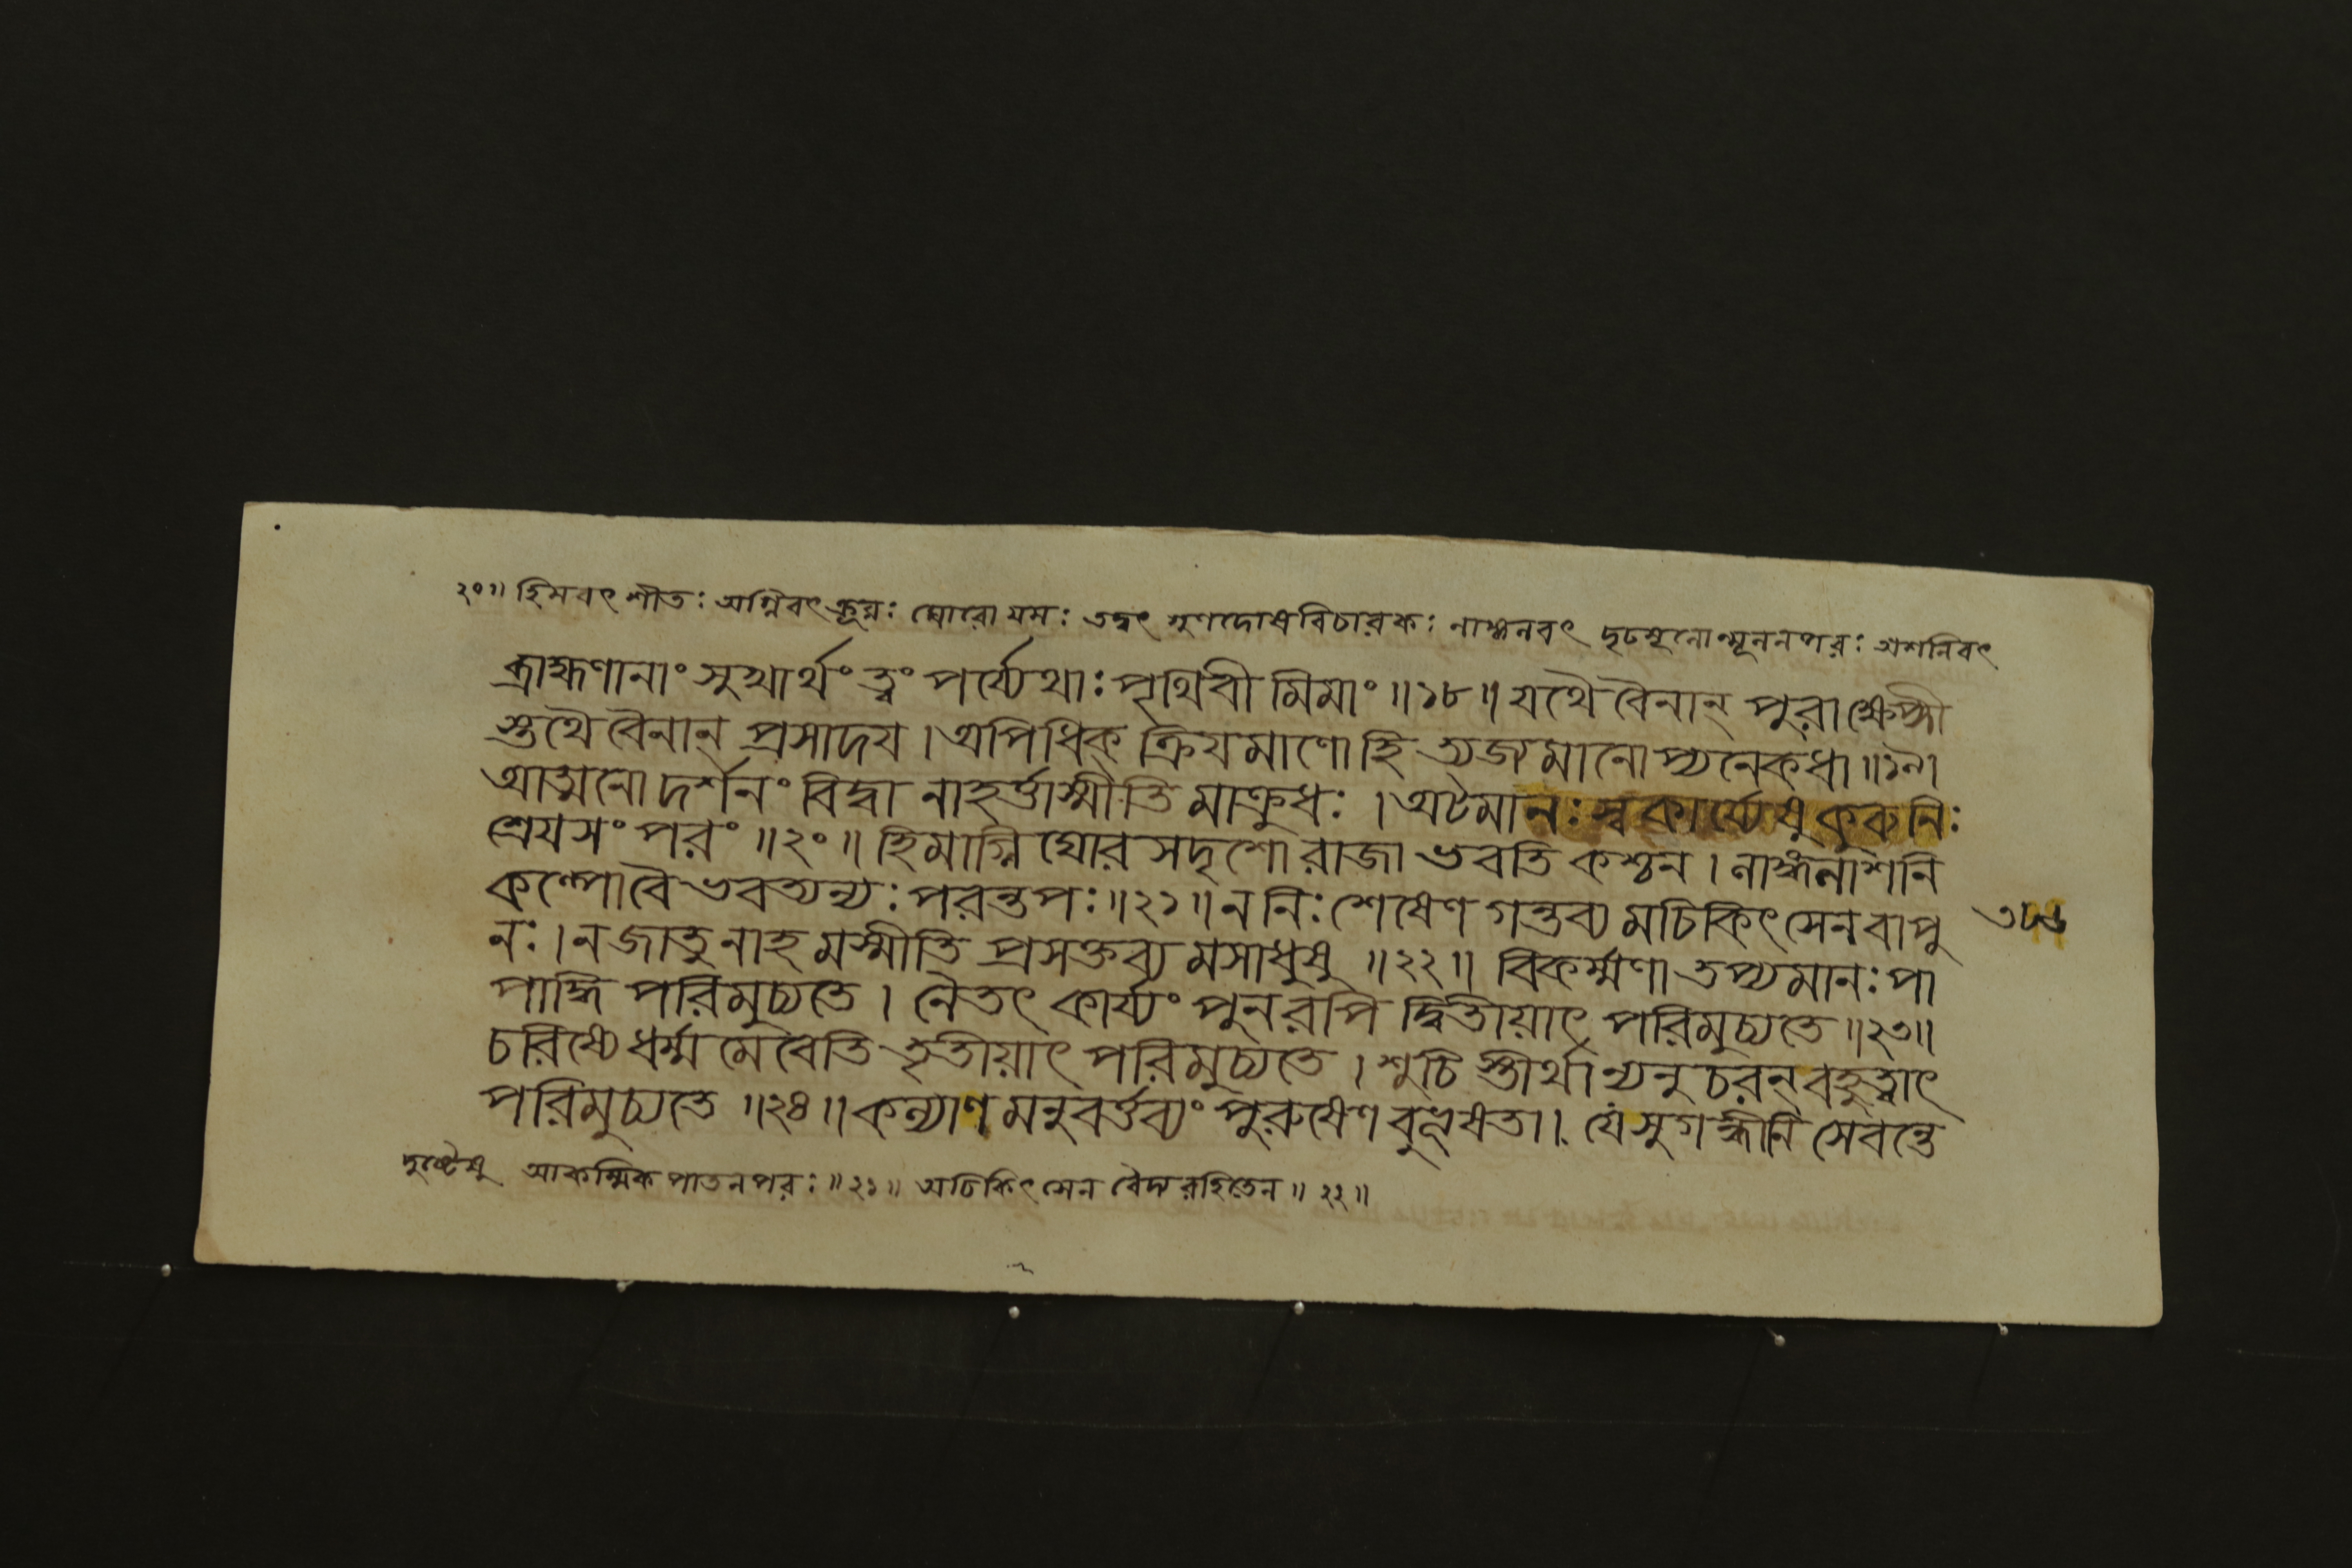 ২০॥ হিমবৎ শীতঃ অগ্নিবৎ ক্রূরঃ ঘোরো যমঃ তদ্বৎ গুণদোষবিচারকঃ লাঙ্গলবৎ দৃঢমূলোন্মূলনপরঃ অশনিবৎ
ব্রাহ্মণানাং সুখার্থং ত্বং পর্য্যেথাঃ পৃথিবী মিমাং ॥১৮॥ যথৈ বৈনান্ পুরাক্ষেপ্সী
স্তথৈ বৈনান্ প্রসাদয । অপিধিক্ ক্রিযমাণো হি ত্যজ্যমানো প্যনেকধা ॥১৯।
আত্মনো দর্শনং বিদ্বা নাহর্ত্তাস্মীতি মাক্রুধঃ । অটমানঃ স্বকার্য্যেষু কুরু নিঃ
শ্রেযসং পরং ॥২০॥ হিমাগ্নি ঘোর সদৃশো রাজা ভবতি কশ্চন । লাঙ্গলাশনি
কল্পো বৈ ভবত্যন্যঃ পরন্তপঃ ॥২১॥ ন নিঃ শেষেণ গন্তব্য মচিকিৎসেন বা পু
নঃ । ন জাতু নাহ মস্মীতি প্রসক্তব্য মসাধুষু ॥২২॥ বিকর্ম্মণা তপ্যমানঃ পা
পাদ্ধি পরিমুচ্যতে । নৈতৎ কার্য্যং পুনরপি দ্বিতীয়াৎ পরিমুচ্যতে ॥২৩॥
চরিষ্যে ধর্ম্ম মেবেতি তৃতীয়াৎ পরিমুচ্যতে । শুচি স্তীর্থা ন্যনুচরন্ বহুত্বাৎ
পরিমুচ্যতে ॥২৪॥ কল্যাণ মনুবর্ত্তব্যং পুরুষেণ বুভূষতা । যে সুগন্ধীনি সেবন্তে
দুষ্টেষু আকস্মিক পাতনপরঃ ॥২১॥ অচিকিৎসেন বৈদ্যরহিতেন ॥২২॥